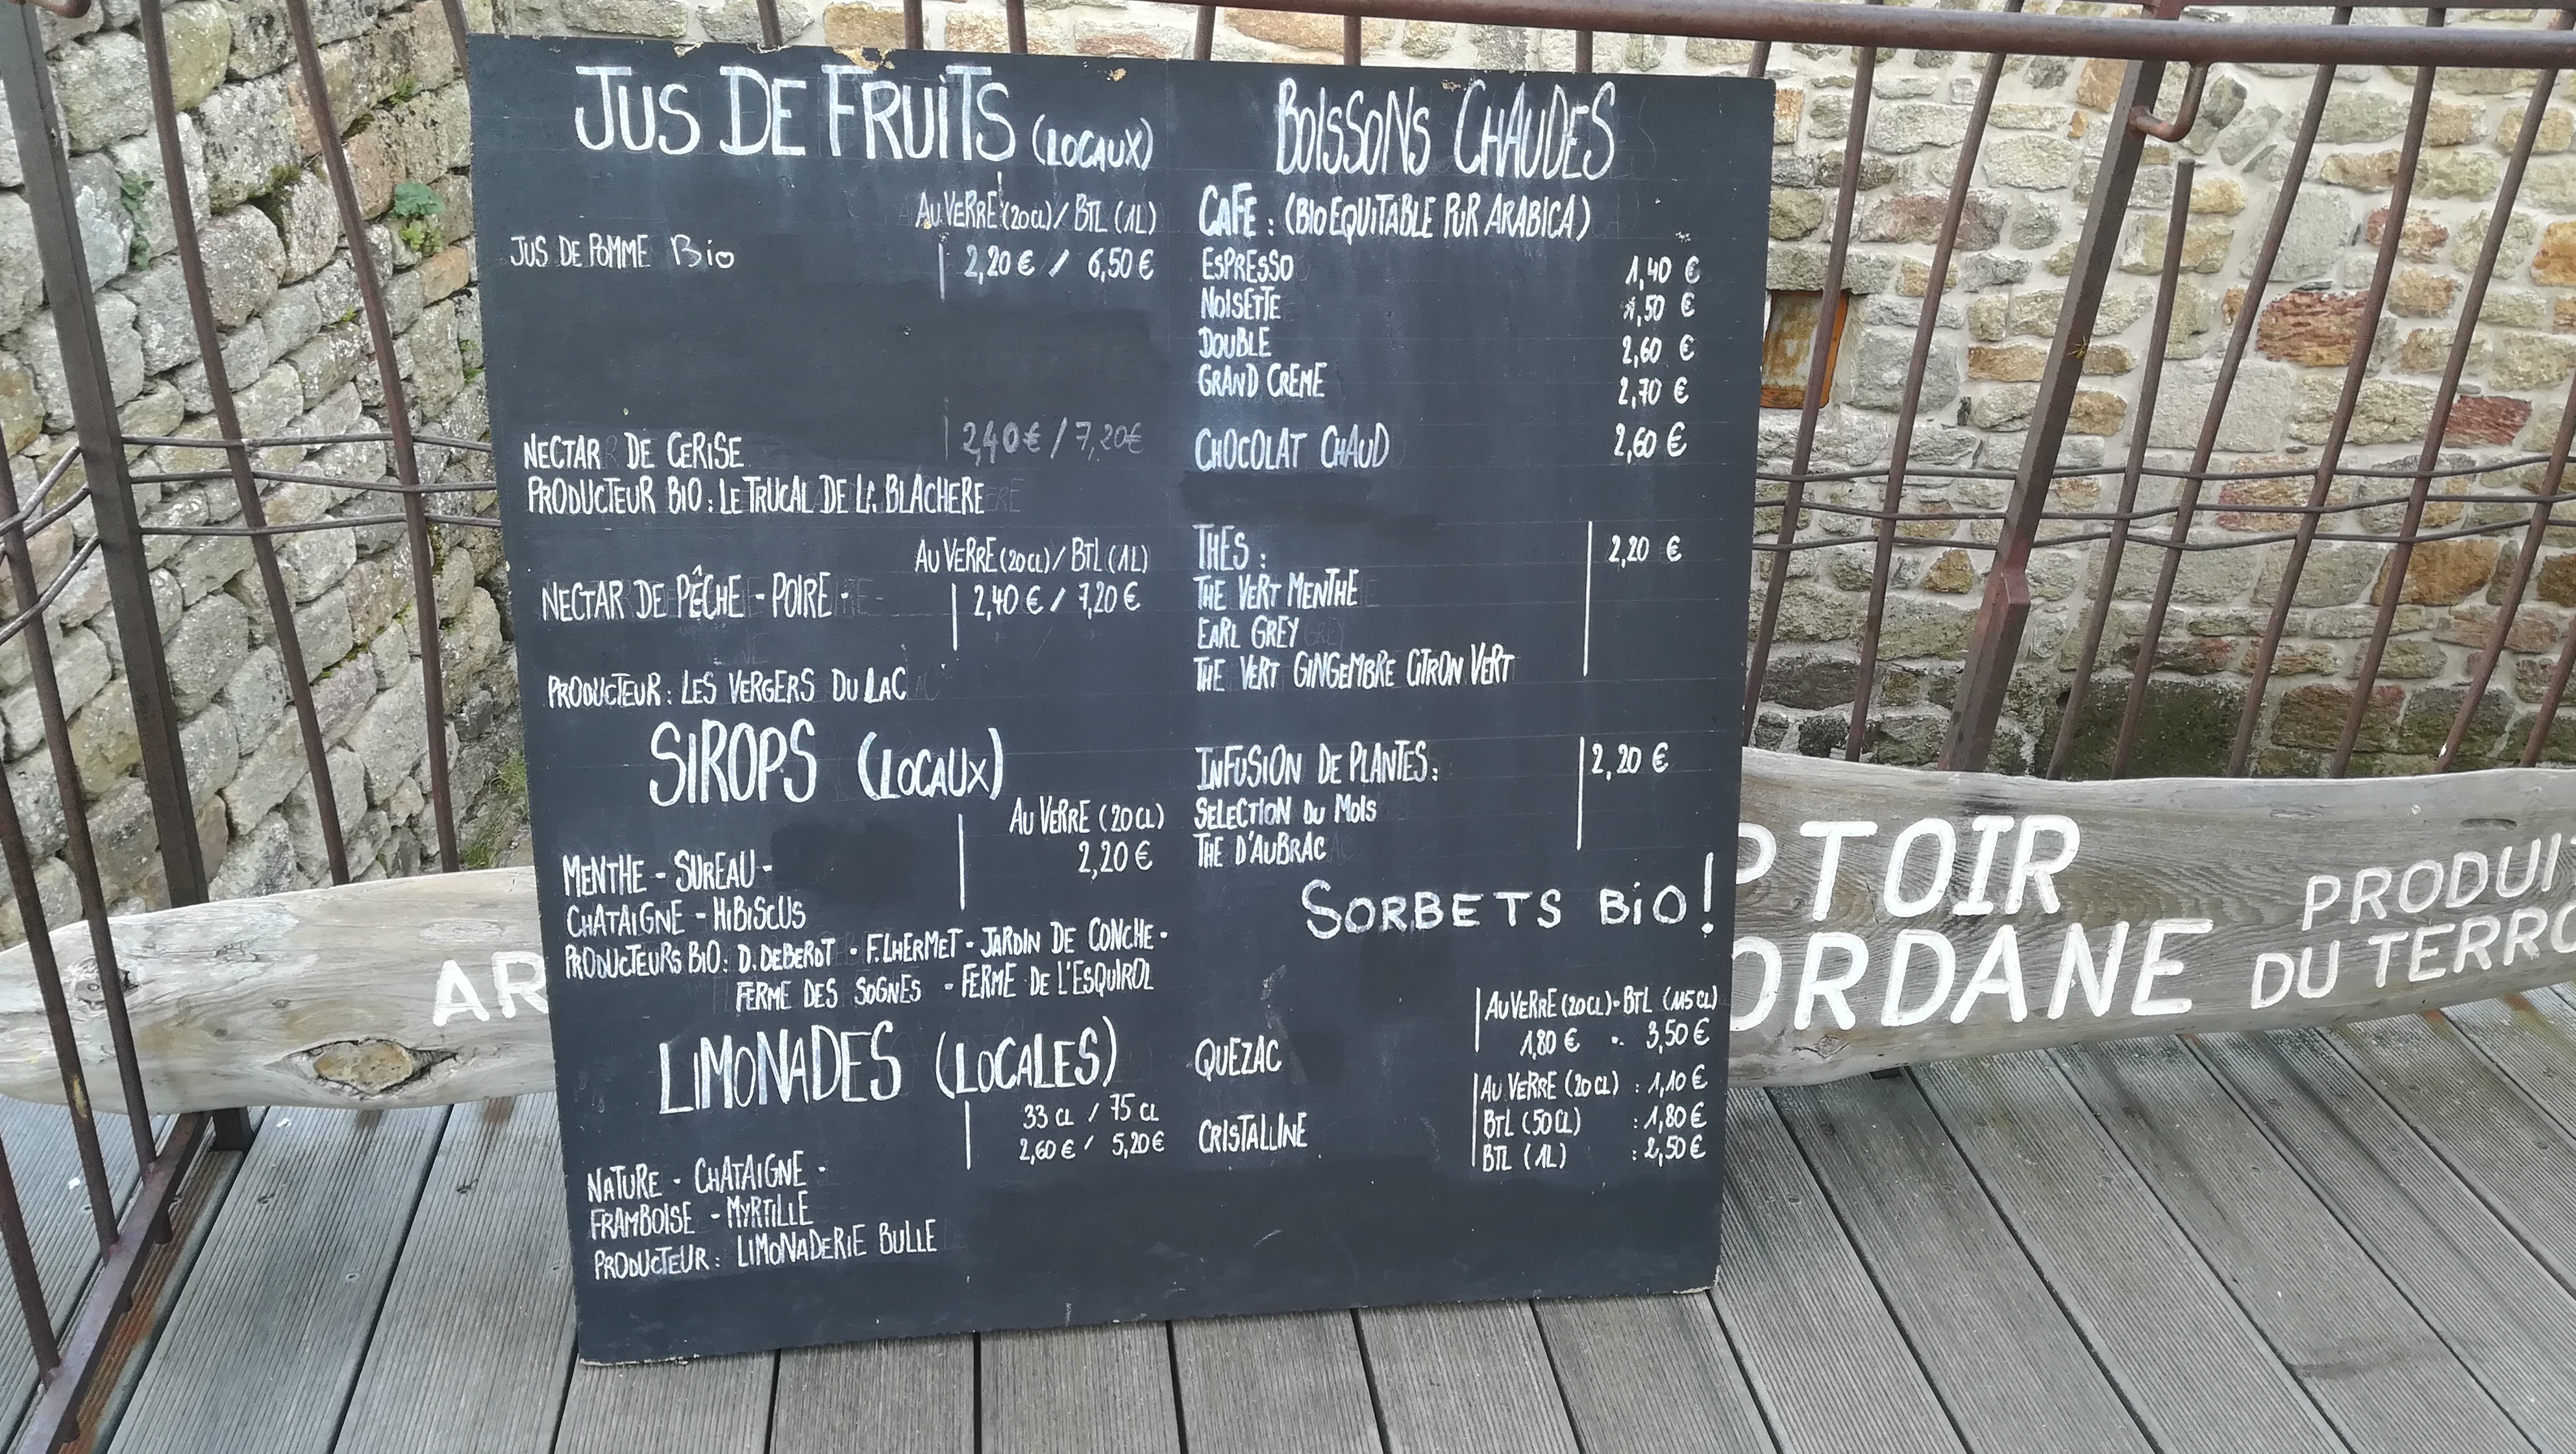 JUS DE FRUITS (LOCAUX)
AU VERRE (20CL) / BTL (1L)
JUS DE POMME Bio
2,20 € / 6,50 €
NECTAR DE CERISE
2,40 € / 7,20 €
PRODUCTEUR BIO : LE TRUCAL DE LA BLACHERE
AU VERRE (20CL) / BTL (1L)
NECTAR DE PÊCHE - POIRE -
2,40 € / 7,20 €
PRODUCTEUR : LES VERGERS DU LAC
SIROPS (LOCAUX)
AU VERRE (20CL)
2,20 €
MENTHE - SUREAU -
CHATAIGNE - HIBISCUS
PRODUCTEURS BIO : D. DEBERDT - F. LHERMET - JARDIN DE CONCHE -
FERME DES SOGNES - FERME DE L'ESQUIROL
LIMONADES (LOCALES)
33 CL / 75 CL
2,60 € / 5,20 €
NATURE - CHATAIGNE -
FRAMBOISE - MYRTILLE
PRODUCTEUR : LIMONADERIE BULLE
BOISSONS CHAUDES
CAFE : (BIO EQUITABLE PUR ARABICA)
ESPRESSO 1,40 €
NOISETTE 1,50 €
DOUBLE 2,60 €
GRAND CREME 2,70 €
CHOCOLAT CHAUD 2,60 €
THES : 2,20 €
THE VERT MENTHE
EARL GREY
THE VERT GINGEMBRE CITRON VERT
INFUSION DE PLANTES : 2,20 €
SELECTION DU MOIS
THE D'AUBRAC
SORBETS BiO !
AU VERRE (20CL) - BTL (115CL)
1,80 € - 3,50 €
QUEZAC
AU VERRE (20CL) : 1,10 €
BTL (50CL) : 1,80 €
CRISTALLINE
BTL (1L) : 2,50 €
AR
PTOIR
ORDANE
PRODUIT
DU TERRO